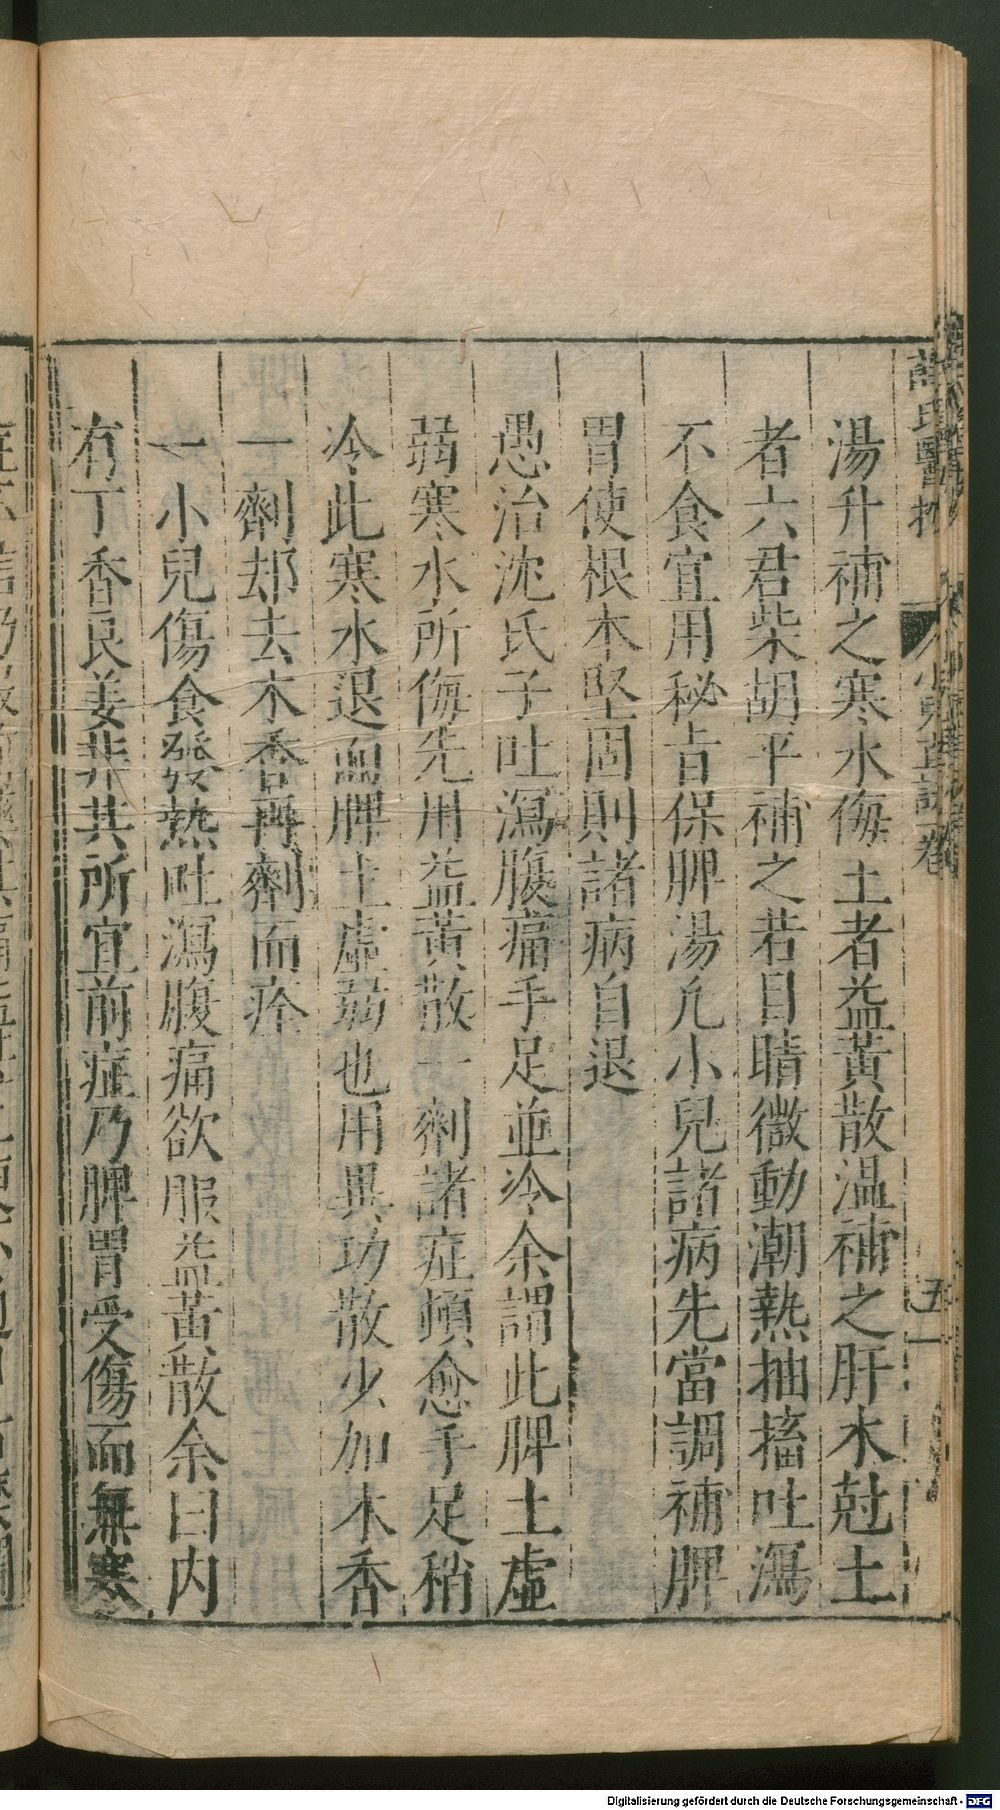 湯升補之寒水侮土者益黃散温補之肝木尅土
者六君柴胡平補之若目睛微動潮熱抽搐吐瀉
不食宜用秘旨保脾湯凢小兒諸病先當調補脾
胃使根本堅固則諸病自退
愚治沈氏子吐瀉腹痛手足並冷余謂此脾土虛
弱寒水所侮先用益黃散一劑諸症頓愈手足稍
冷此寒水退而脾土虛弱也用異功散少加木香
一劑却去木香再劑而痊
一小兒傷食發熱吐瀉腹痛欲服益黃散余曰内
有丁香良姜非其所宜前症乃脾胃受傷而無寒
薛氏醫按
小兒直訣一卷
五
Digitalisierung gefördert durch die Deutsche Forschungsgemeinschaft - DFG